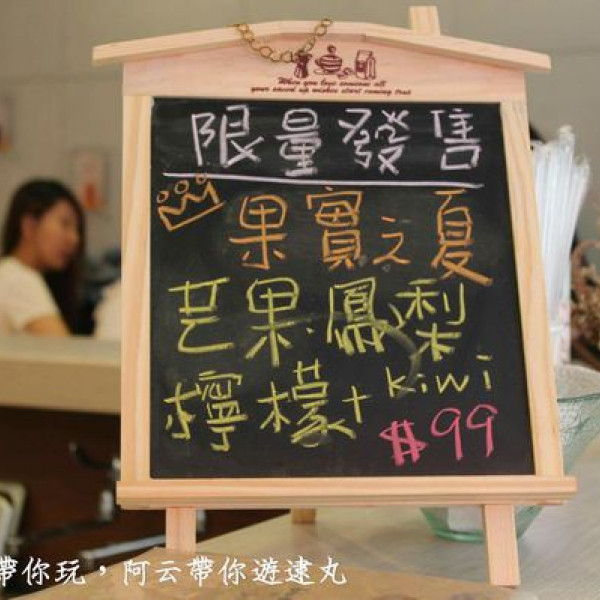 When you love someone all
your saved up wishes start coming true
限量發售
果實之夏
芒果.鳳梨
檸檬+kiwi
$99
帶你玩，阿云帶你遊逮丸